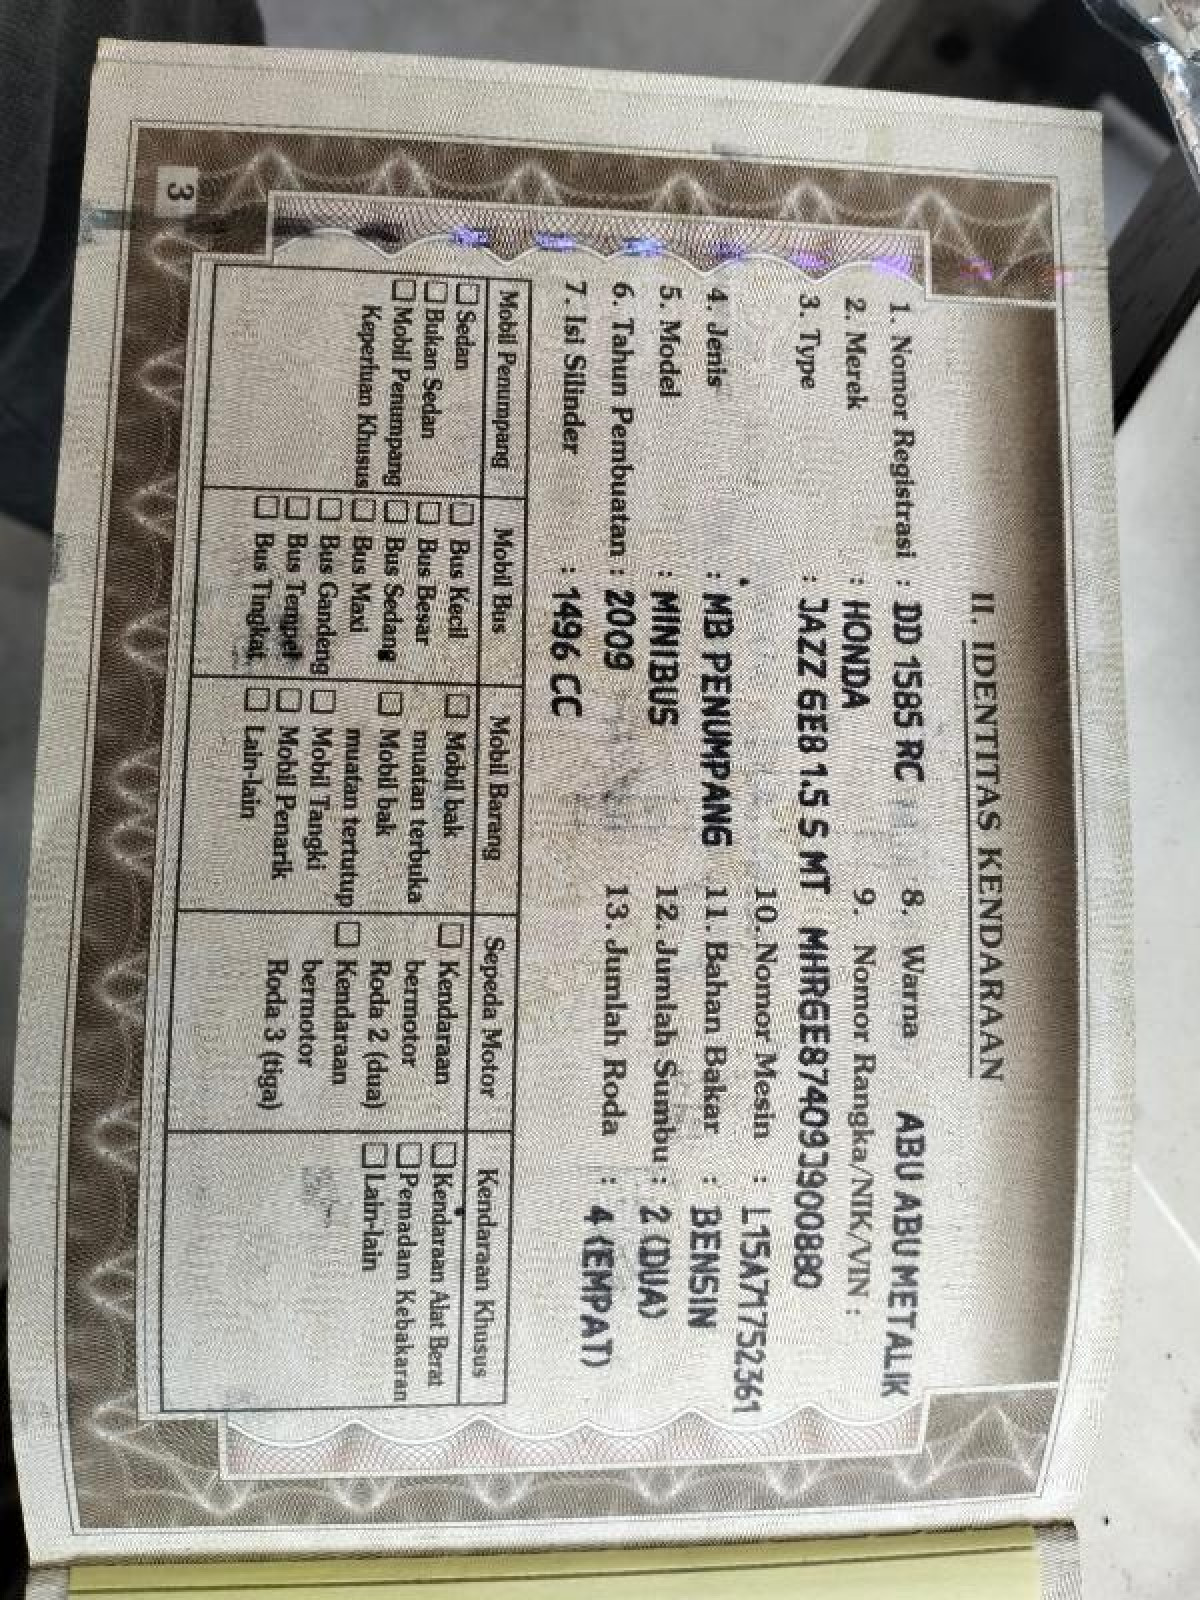 II. IDENTITAS KENDARAAN
1. Nomor Registrasi : DD 1585 RC
2. Merek : HONDA
3. Type : JAZZ GE8 1.5 S MT
4. Jenis : MB PENUMPANG
5. Model : MINIBUS
6. Tahun Pembuatan : 2009
7. Isi Silinder : 1496 CC
8. Warna ABU ABU METALIK
9. Nomor Rangka/NIK/VIN :
MHRGE87409J900880
10. Nomor Mesin : L15A71752361
11. Bahan Bakar : BENSIN
12. Jumlah Sumbu : 2 (DUA)
13. Jumlah Roda : 4 (EMPAT)
Mobil Penumpang
Sedan
Bukan Sedan
Mobil Penumpang
Keperluan Khusus
Mobil Bus
Bus Kecil
Bus Besar
Bus Sedang
Bus Maxi
Bus Gandeng
Bus Tempel
Bus Tingkat
Mobil Barang
Mobil bak
muatan terbuka
Mobil bak
muatan tertutup
Mobil Tangki
Mobil Penarik
Lain-lain
Sepeda Motor
Kendaraan
bermotor
Roda 2 (dua)
Kendaraan
bermotor
Roda 3 (tiga)
Kendaraan Khusus
Kendaraan Alat Berat
Pemadam Kebakaran
Lain-lain
3